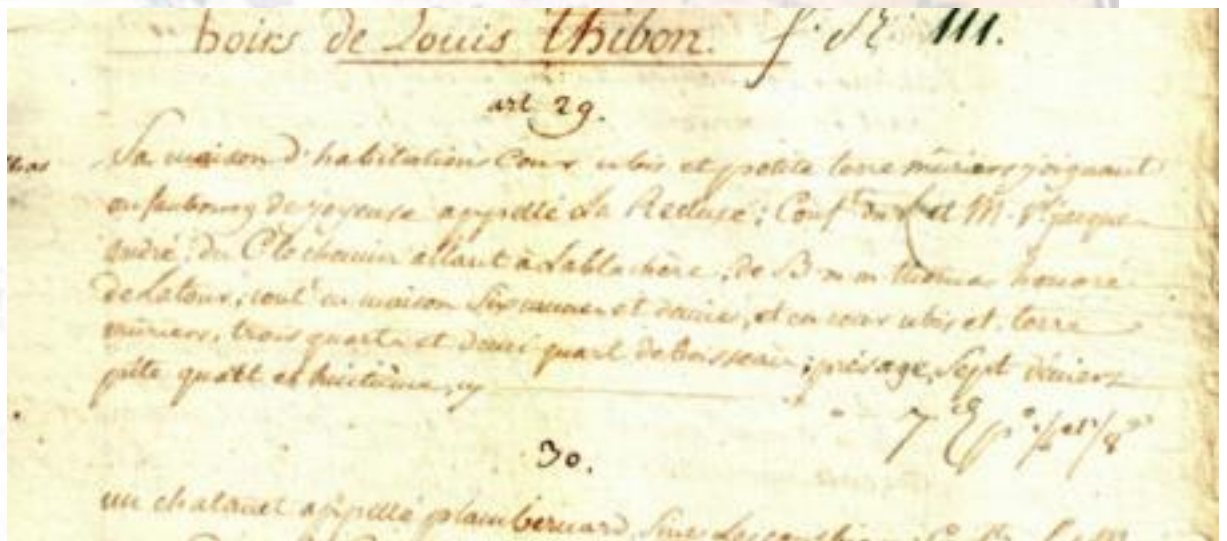 hoirs de Louis Thibon. f. R. 111.
art 29.
Sa maison d'habitation Cour ubis et petite terre mûriers joignant
au faubourg de joyeuse appellé La Recluse; Conf.t du et M.
André; du C. le chemin allant à Lablachère; de B. m. m. thomas honoré
de Latour; cont.t en maison Six cannes et demies, et en cour ubis et terre
mûriers, trois quarts et demi quart de boisseau; présage, Sept déniers
pite quart et huitième, cy
7
30.
un chatanet appellé plambernard,